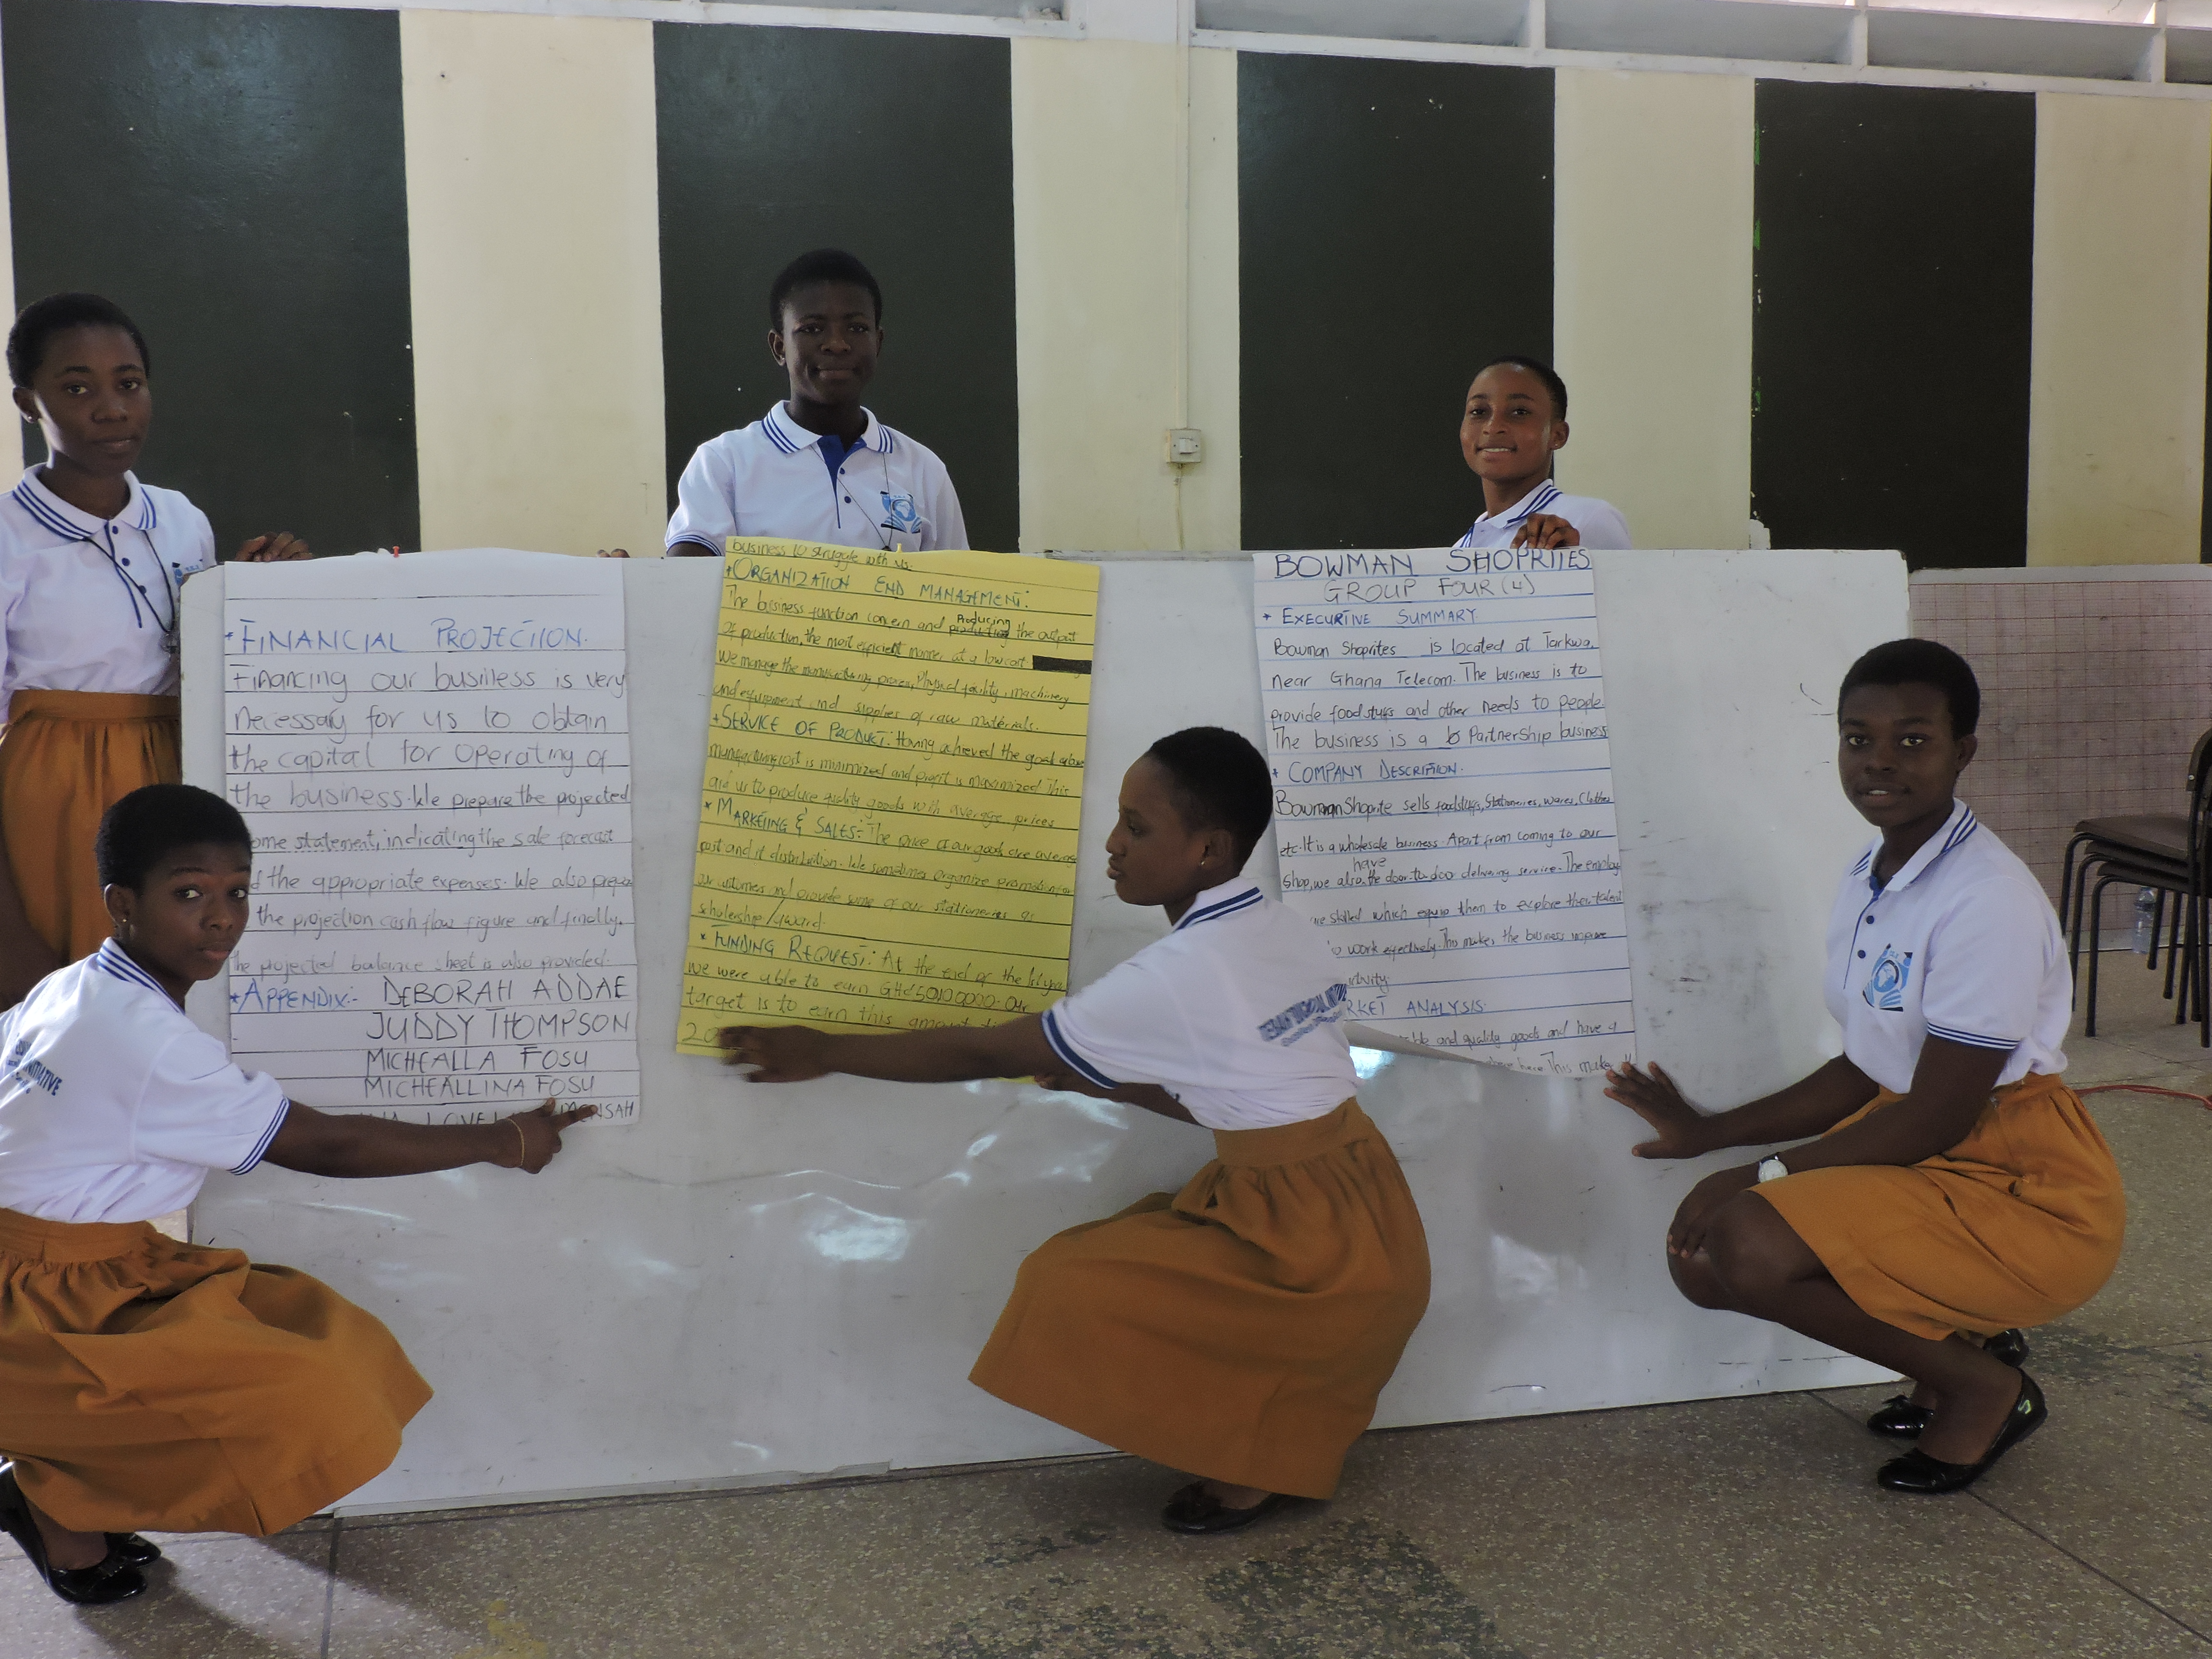 * FINANCIAL PROJECTION.
Financing our business is very
necessary for us to obtain
the capital for operating of
the business. We prepare the projected
ome statement, indicating the sale forecast
d the appropriate expenses. We also prepare
the projection cash flow figure and finally.
The projected balance sheet is also provided.
* APPENDIX:- DEBORAH ADDAE
JUDDY THOMPSON
MICHEALLA FOSU
MICHEALLINA FOSU
LOVE MENSAH
business to struggle with us.
* ORGANIZATION END MANAGEMENT:
The business function concern and Producing the output
of production, the most efficient manner at a low cost
We manage the manufacturing process, Physical facility, machinery
and equipment and supplies of raw materials.
* SERVICE OF PRODUCT: Having achieved the goal above
manufacturing cost is minimized and profit is maximized This
aid us to produce quality goods with average prices
* MARKETING & SALES:- The price of our goods are average
past and it distribution. We sometimes organize promotion for
our customers and provide some of our stationeries as
scholarship /Award.
* FUNDING REQUEST: At the end of the 1st year
we were able to earn GH¢ Our
target is to earn this amount
BOWMAN SHOPRITES
GROUP FOUR (4)
* EXECURTIVE SUMMARY
Bowman Shoprites is located at Tarkwa,
near Ghana Telecom. The business is to
provide foodstuffs and other needs to people.
The business is a Partnership business
* COMPANY DESCRIPTION.
Bowman Shoprite sells foodstuffs, Stationeries, wares, Clothes
etc. It is a wholesale business. Apart from coming to our
Shop, we also have the door to door delivering service. The employ
are skilled which equip them to explore their talent
to work effectively. This makes the business improve
RKET ANALYSIS.
ble and quality goods and have a
here. This make